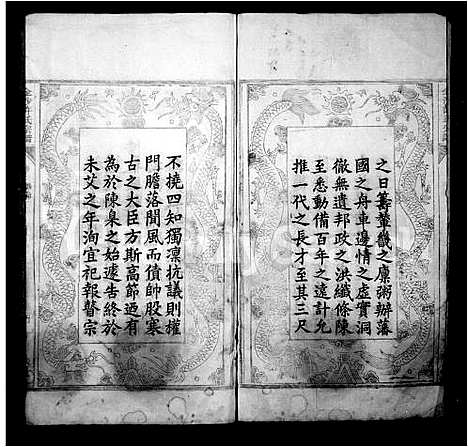 之日籌輦轂之糜粥辦藩
國之舟車邊情之虛實洞
徹無遺邦政之洪纖條陳
至悉動備百年之遠計允
推一代之長才至其三尺
不撓四知獨凜抗議則權
門膽落聞風而債帥股寒
古之大臣方斯高節迺有
為於陳臬之始遽告終於
未艾之年洵宜祀報瞽宗